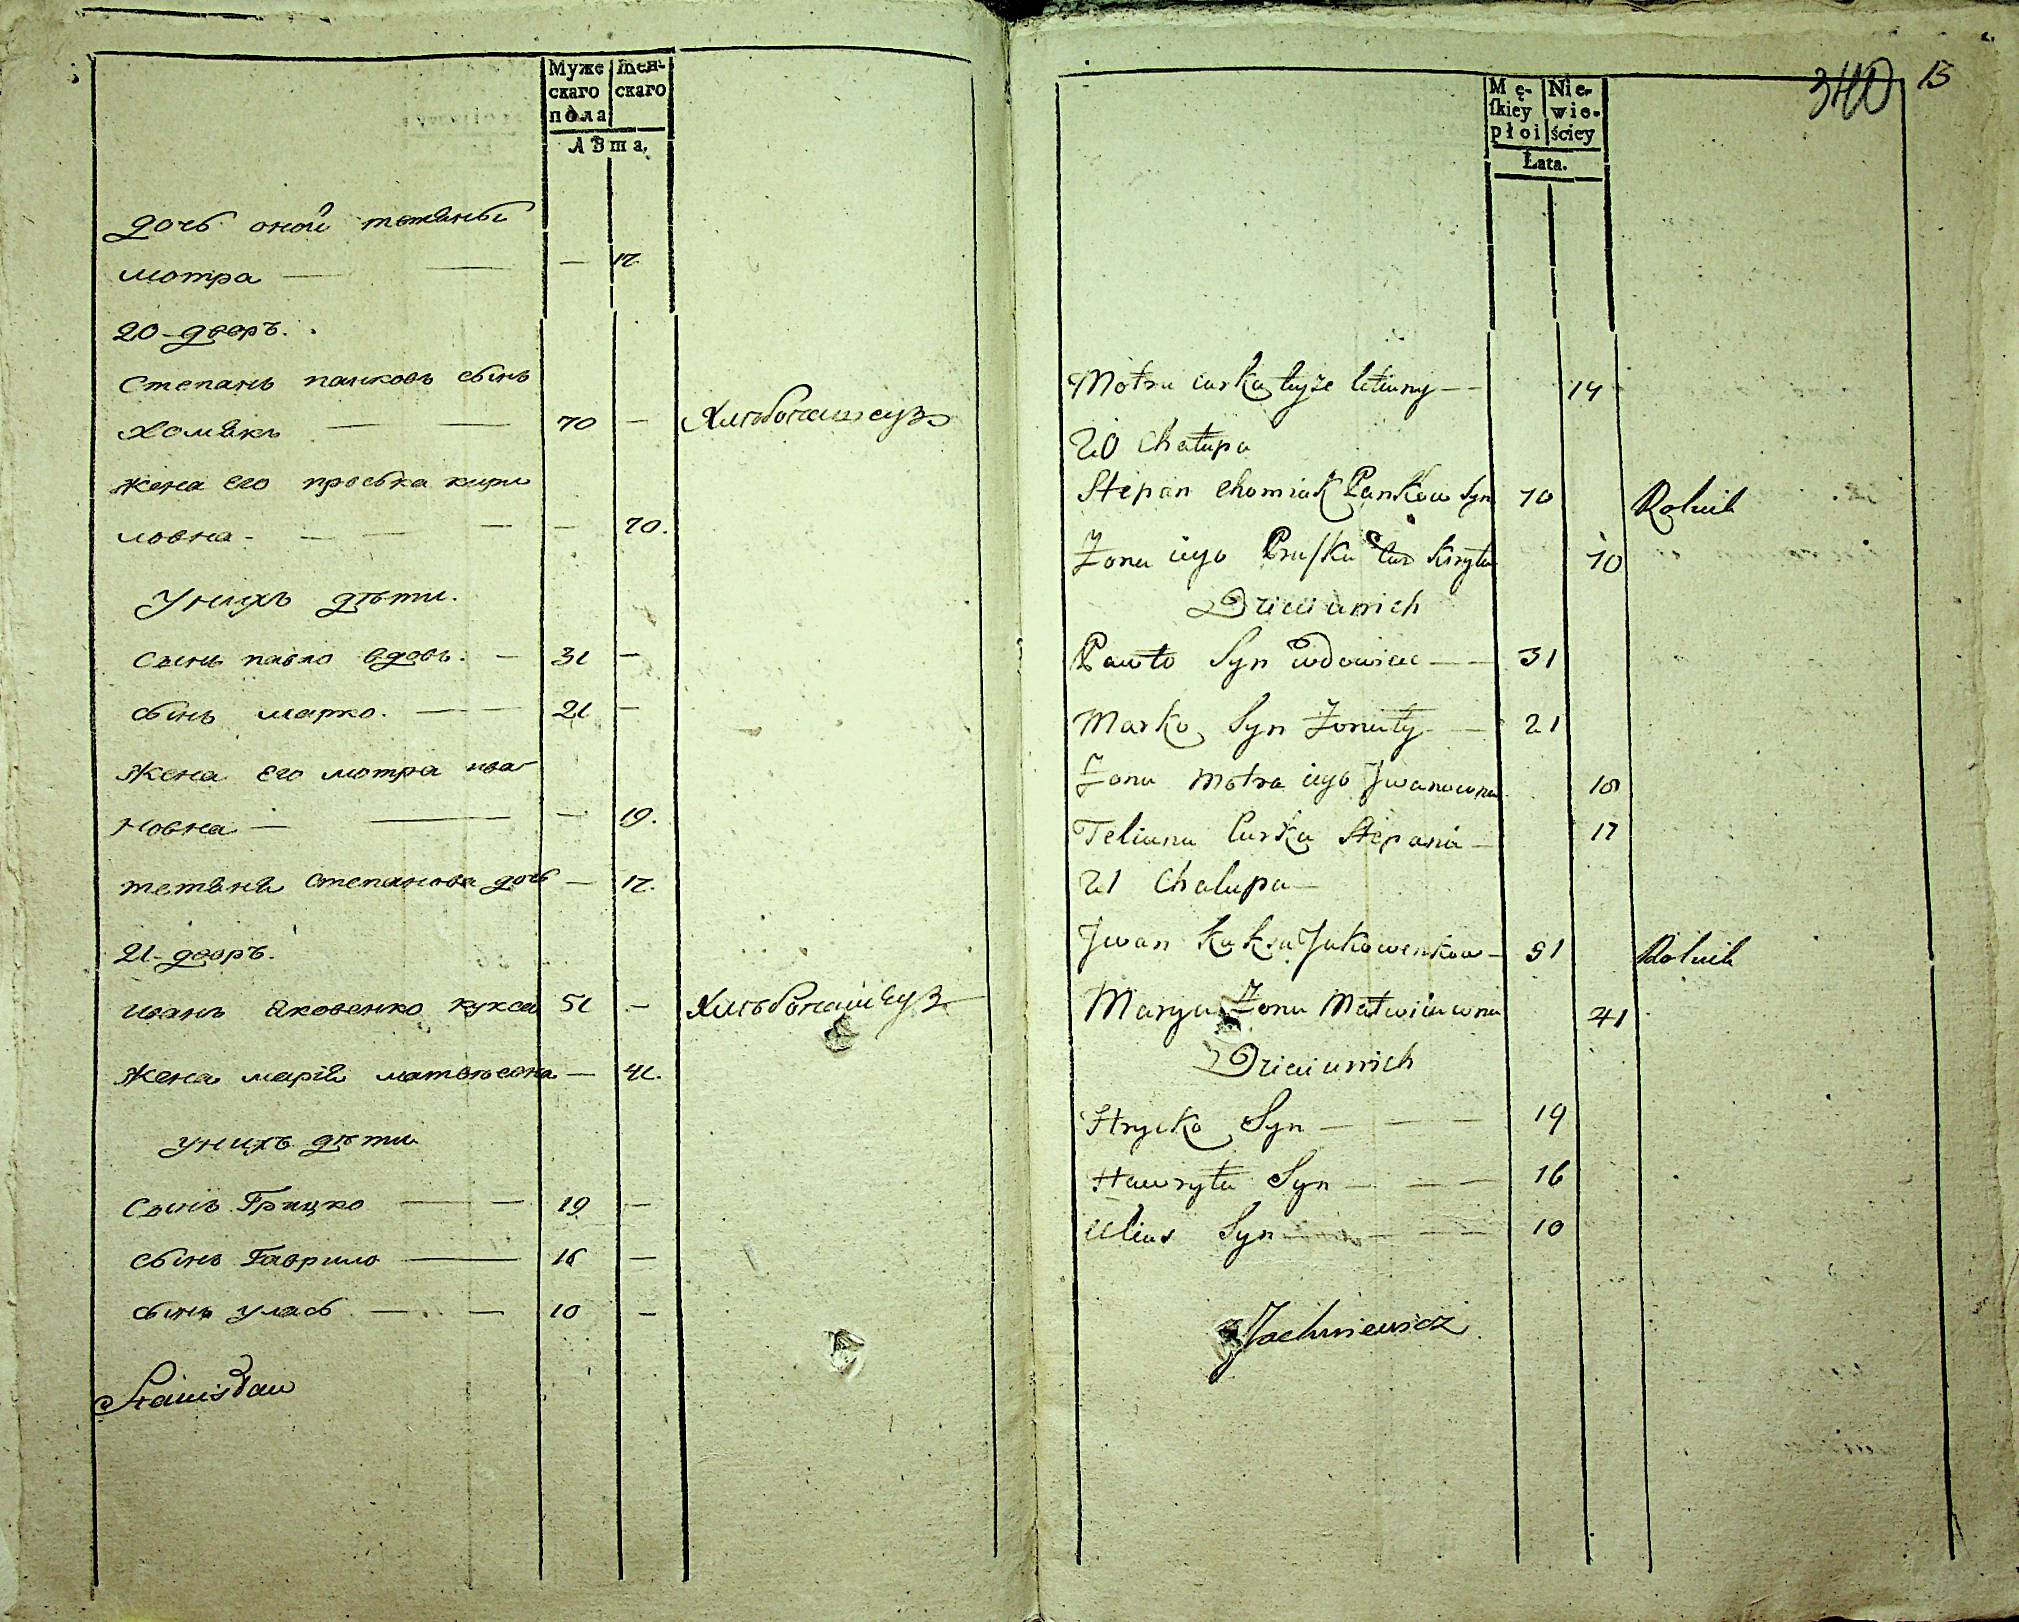 Муже
скаго
пола
Жен-
скаго
ЛѢта.
дочь оной тетяны
мотра — — — 17.
20 дворъ.
Степанъ панковъ сынъ
Хомякъ — — 70 — Хлѣбопашецъ
жена его проська кири
ловна - — — — — 70.
У нихъ дѣти.
Сынъ павло вдовъ. — 31 —
сынъ марко. — — 21 —
жена его мотра ива-
новна — — — 19.
тетяна Степанова дочь — 17.
21 дворъ.
иванъ Яковенко кукса 51 — Хлѣбопашецъ
жена марія матвѣевна — 41.
у нихъ дѣти
Сынъ Грицко — — 19 —
сынъ Гаврило — 16 —
сынъ уласъ — — 10 —
Stanisław
340 13
Mę-
skiey
płoi
Nie-
wie-
ściey
Łata.
Motra curka tyże — — 14
20 Chałupa
Stepan Chomiak Pankow Syn 70 Rolnik
Żona iego Pruska Kiryła 70
Dzieci u nich
Pawło Syn wdowiec — — 31
Marko Syn Żonaty — — 21
Żona Motra iego Jwanowna 18
Teliana Curka Stepana — 17
21 Chalupa —
Jwan Kuksa Jakowenkow — 51 Rolnik
Marya Żona Matwieiewna 41
Dzieci u nich
Hrycko Syn — — — 19
Hawryła Syn — — — 16
Ulias Syn — — — 10
Jachniewicz